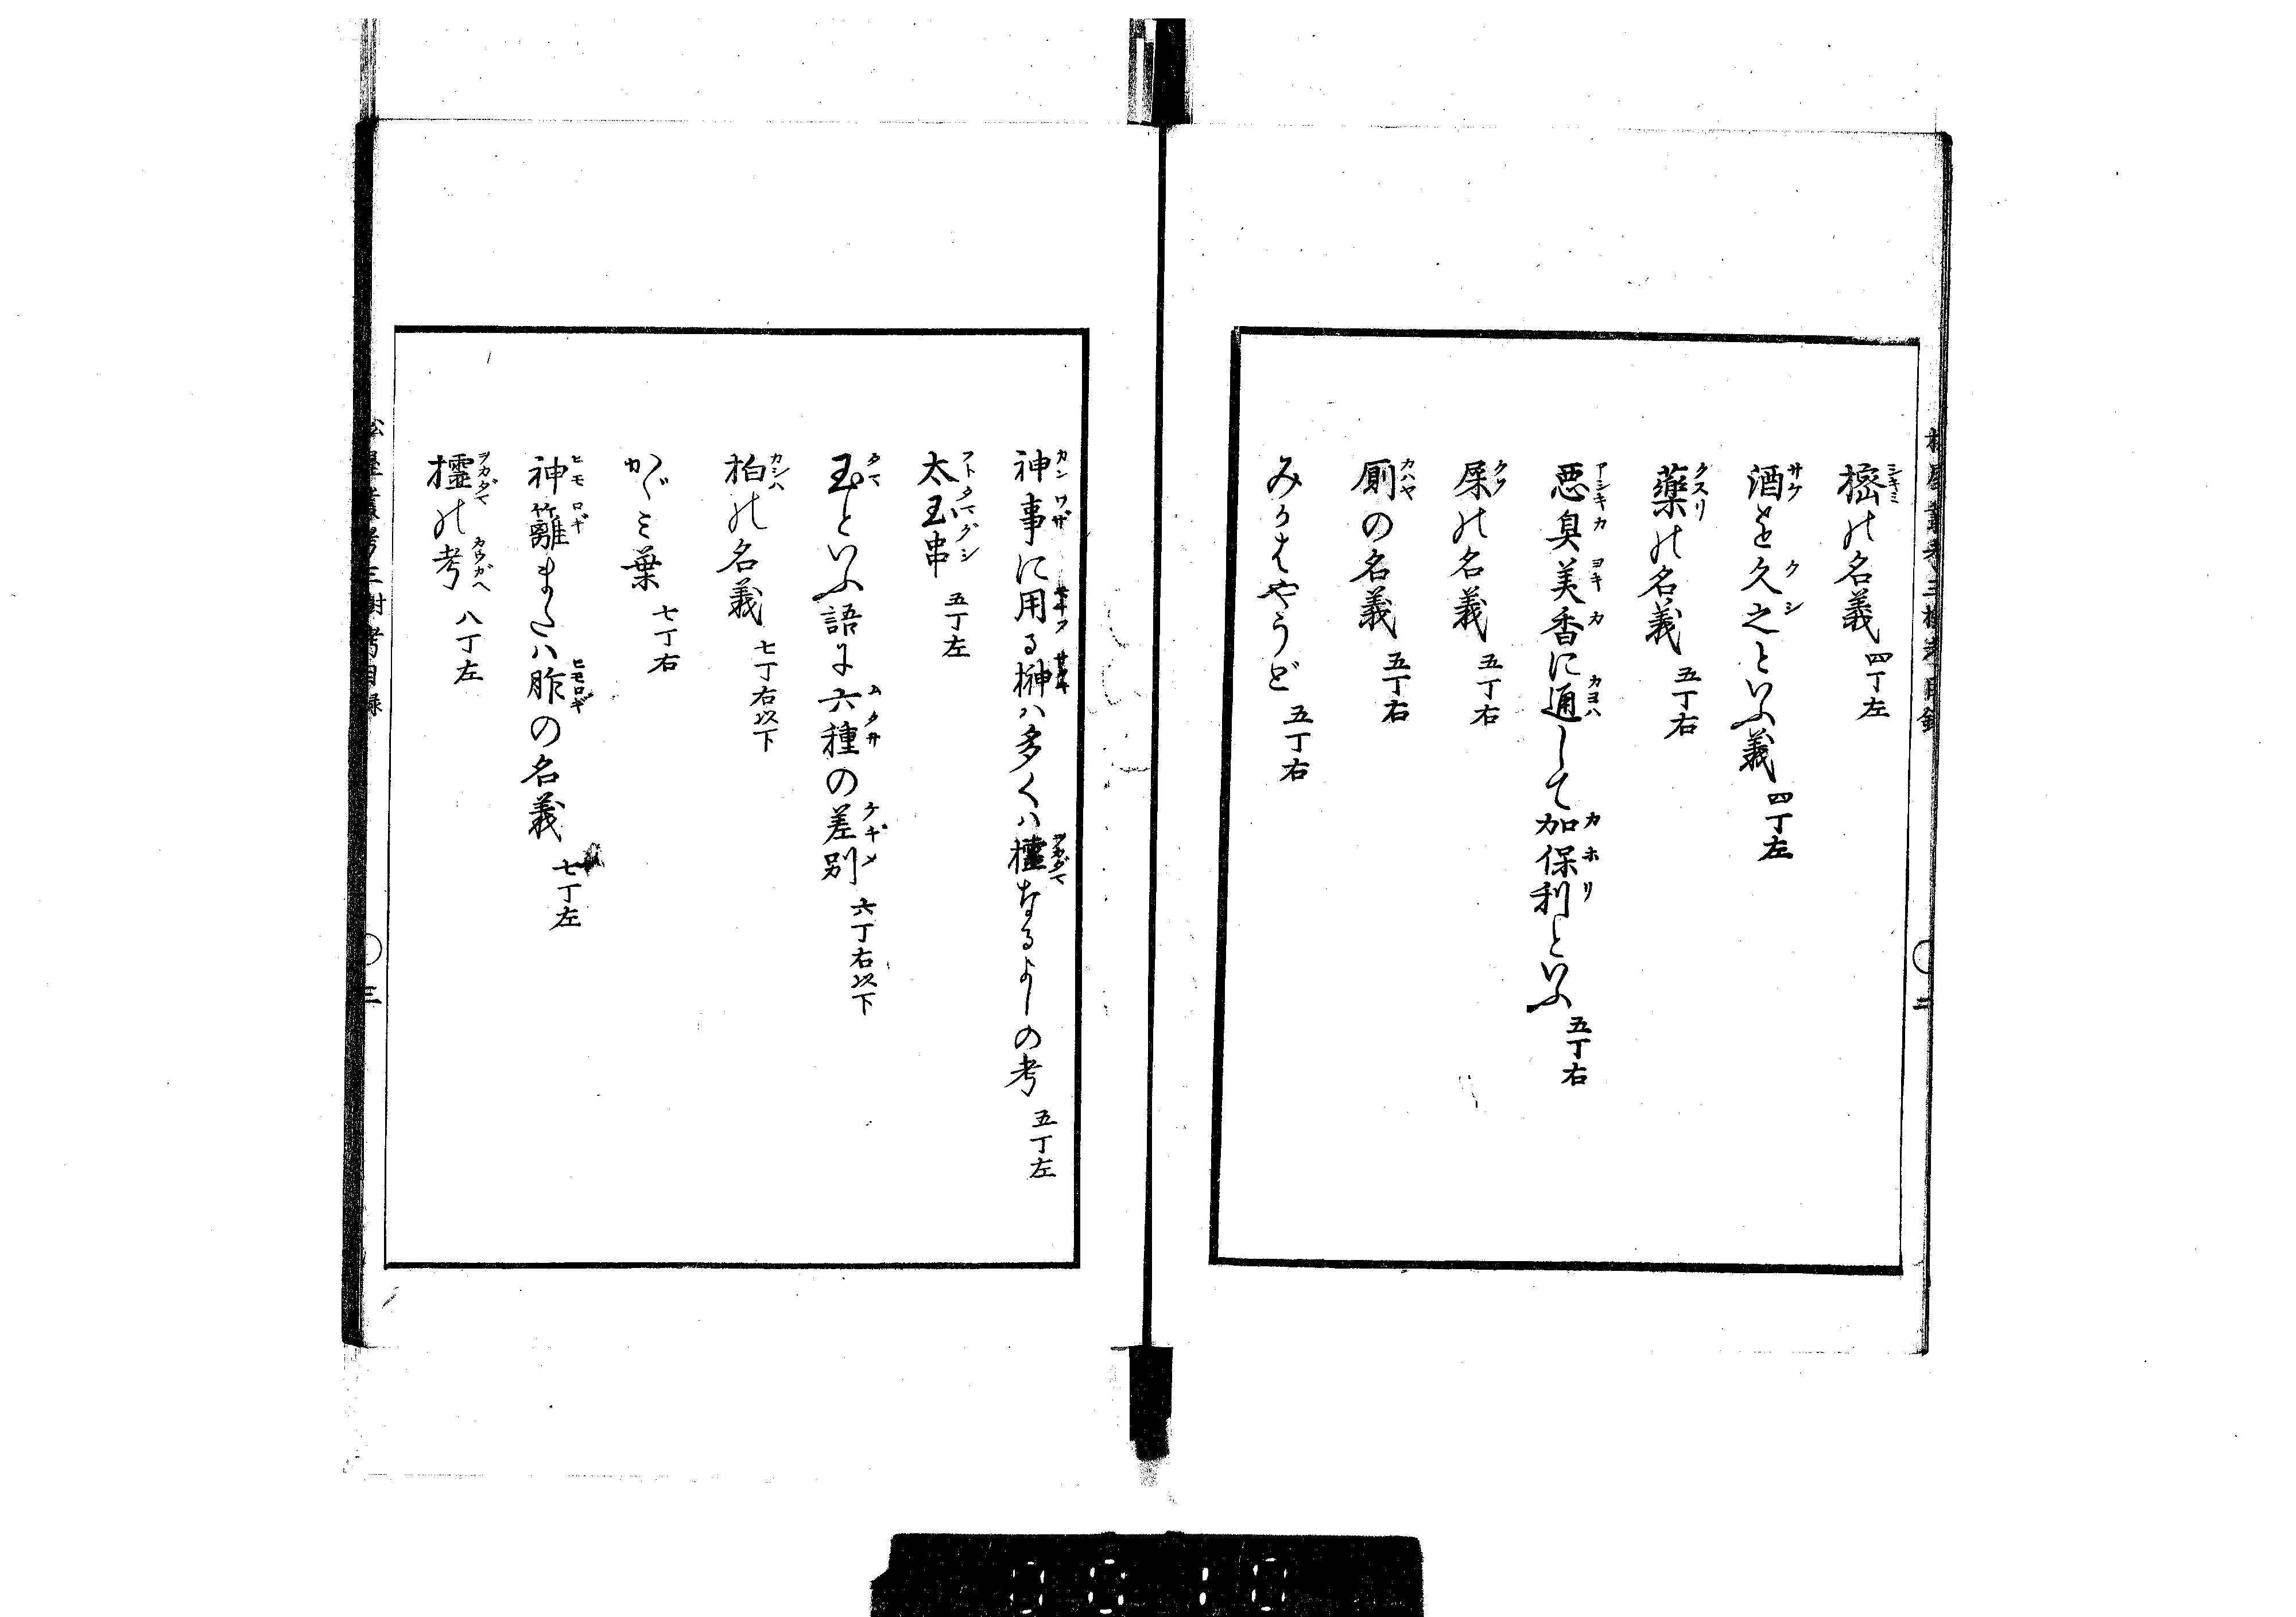 樒の名義 四丁左
酒を久之といふ義 四丁左
薬の名義 五丁右
悪臭美香に通して加保利といふ 五丁右
屎の名義 五丁右
厠の名義 五丁右
みかはやうど 五丁右
神事に用る榊ハ多くハ櫺なるよしの考 五丁左
太玉串 五丁左
玉といふ語に六種の差別 六丁右以下
柏の名義 七丁右以下
かゞミ葉 七丁右
神籬またハ胙の名義 七丁左
櫺の考 八丁左
松屋叢考三樹考目録 三